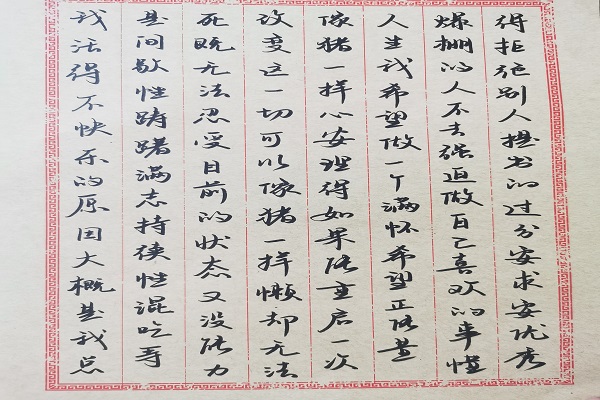 我活得不快乐的原因大概是我总
是间歇性踌躇满志持续性混吃等
死既无法忍受目前的状态又没能力
改变这一切可以像猪一样懒却无法
像猪一样心安理得如果能重启一次
人生我希望做一个满怀希望正能量
爆棚的人不去强迫做自己喜欢的事懂
得拒绝别人提出的过分要求要优秀